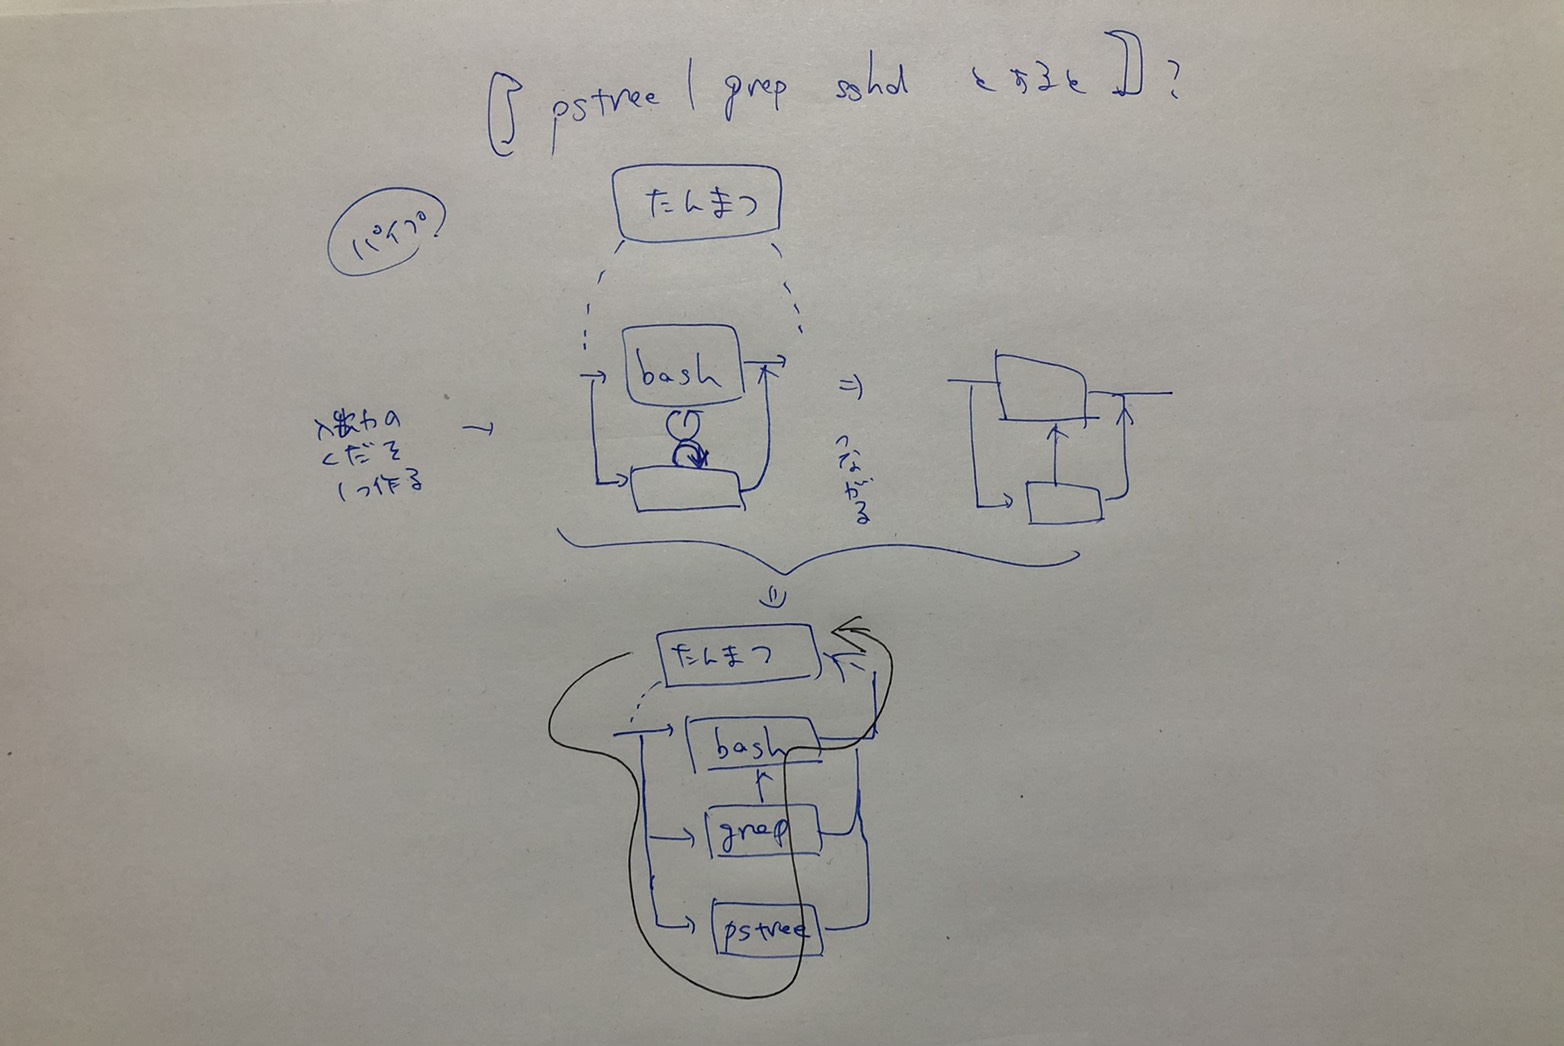 『 pstree | grep sshd とすると 』?
たんまつ
パイプ
bash
入出力の
くだを
1つ作る
→
⇒
つながる
たんまつ
bash
grep
pstree